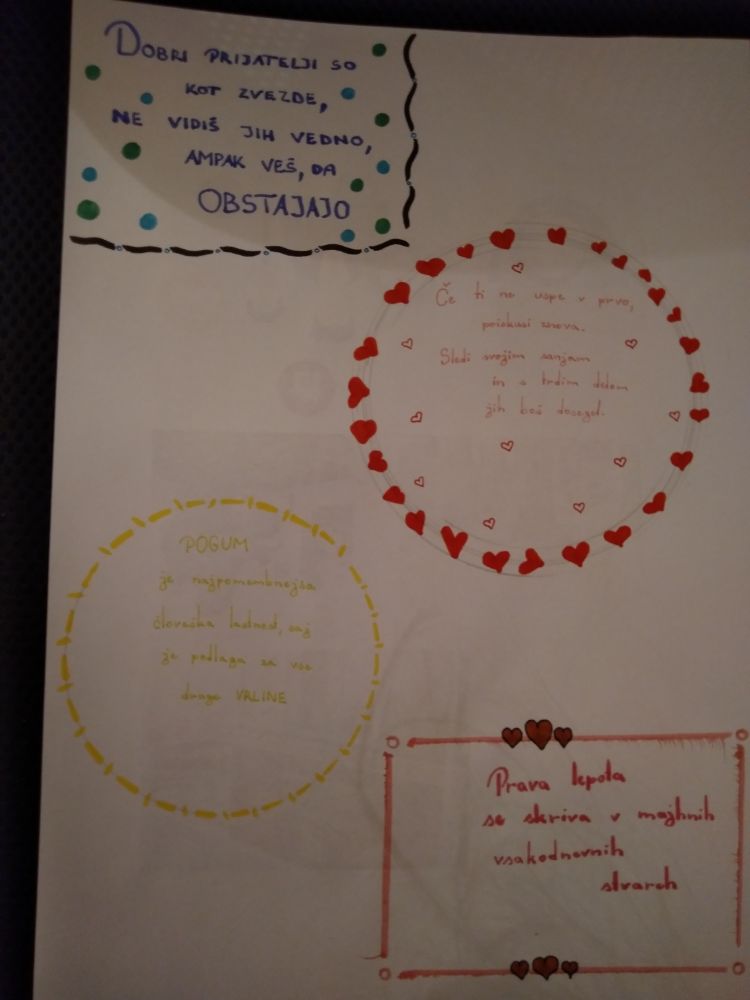 DOBRI PRIJATELJI SO
KOT ZVEZDE,
NE VIDIŠ JIH VEDNO,
AMPAK VEŠ, DA
OBSTAJAJO
Če ti ne uspe v prvo,
poizkusi znova.
Sledi svojim sanjam
in s trdim delom
jih boš dosegel.
POGUM
je najpomembnejša
človeška lastnost, saj
je podlaga za vse
druge VRLINE
Prava lepota
se skriva v majhnih
vsakodnevnih
stvareh